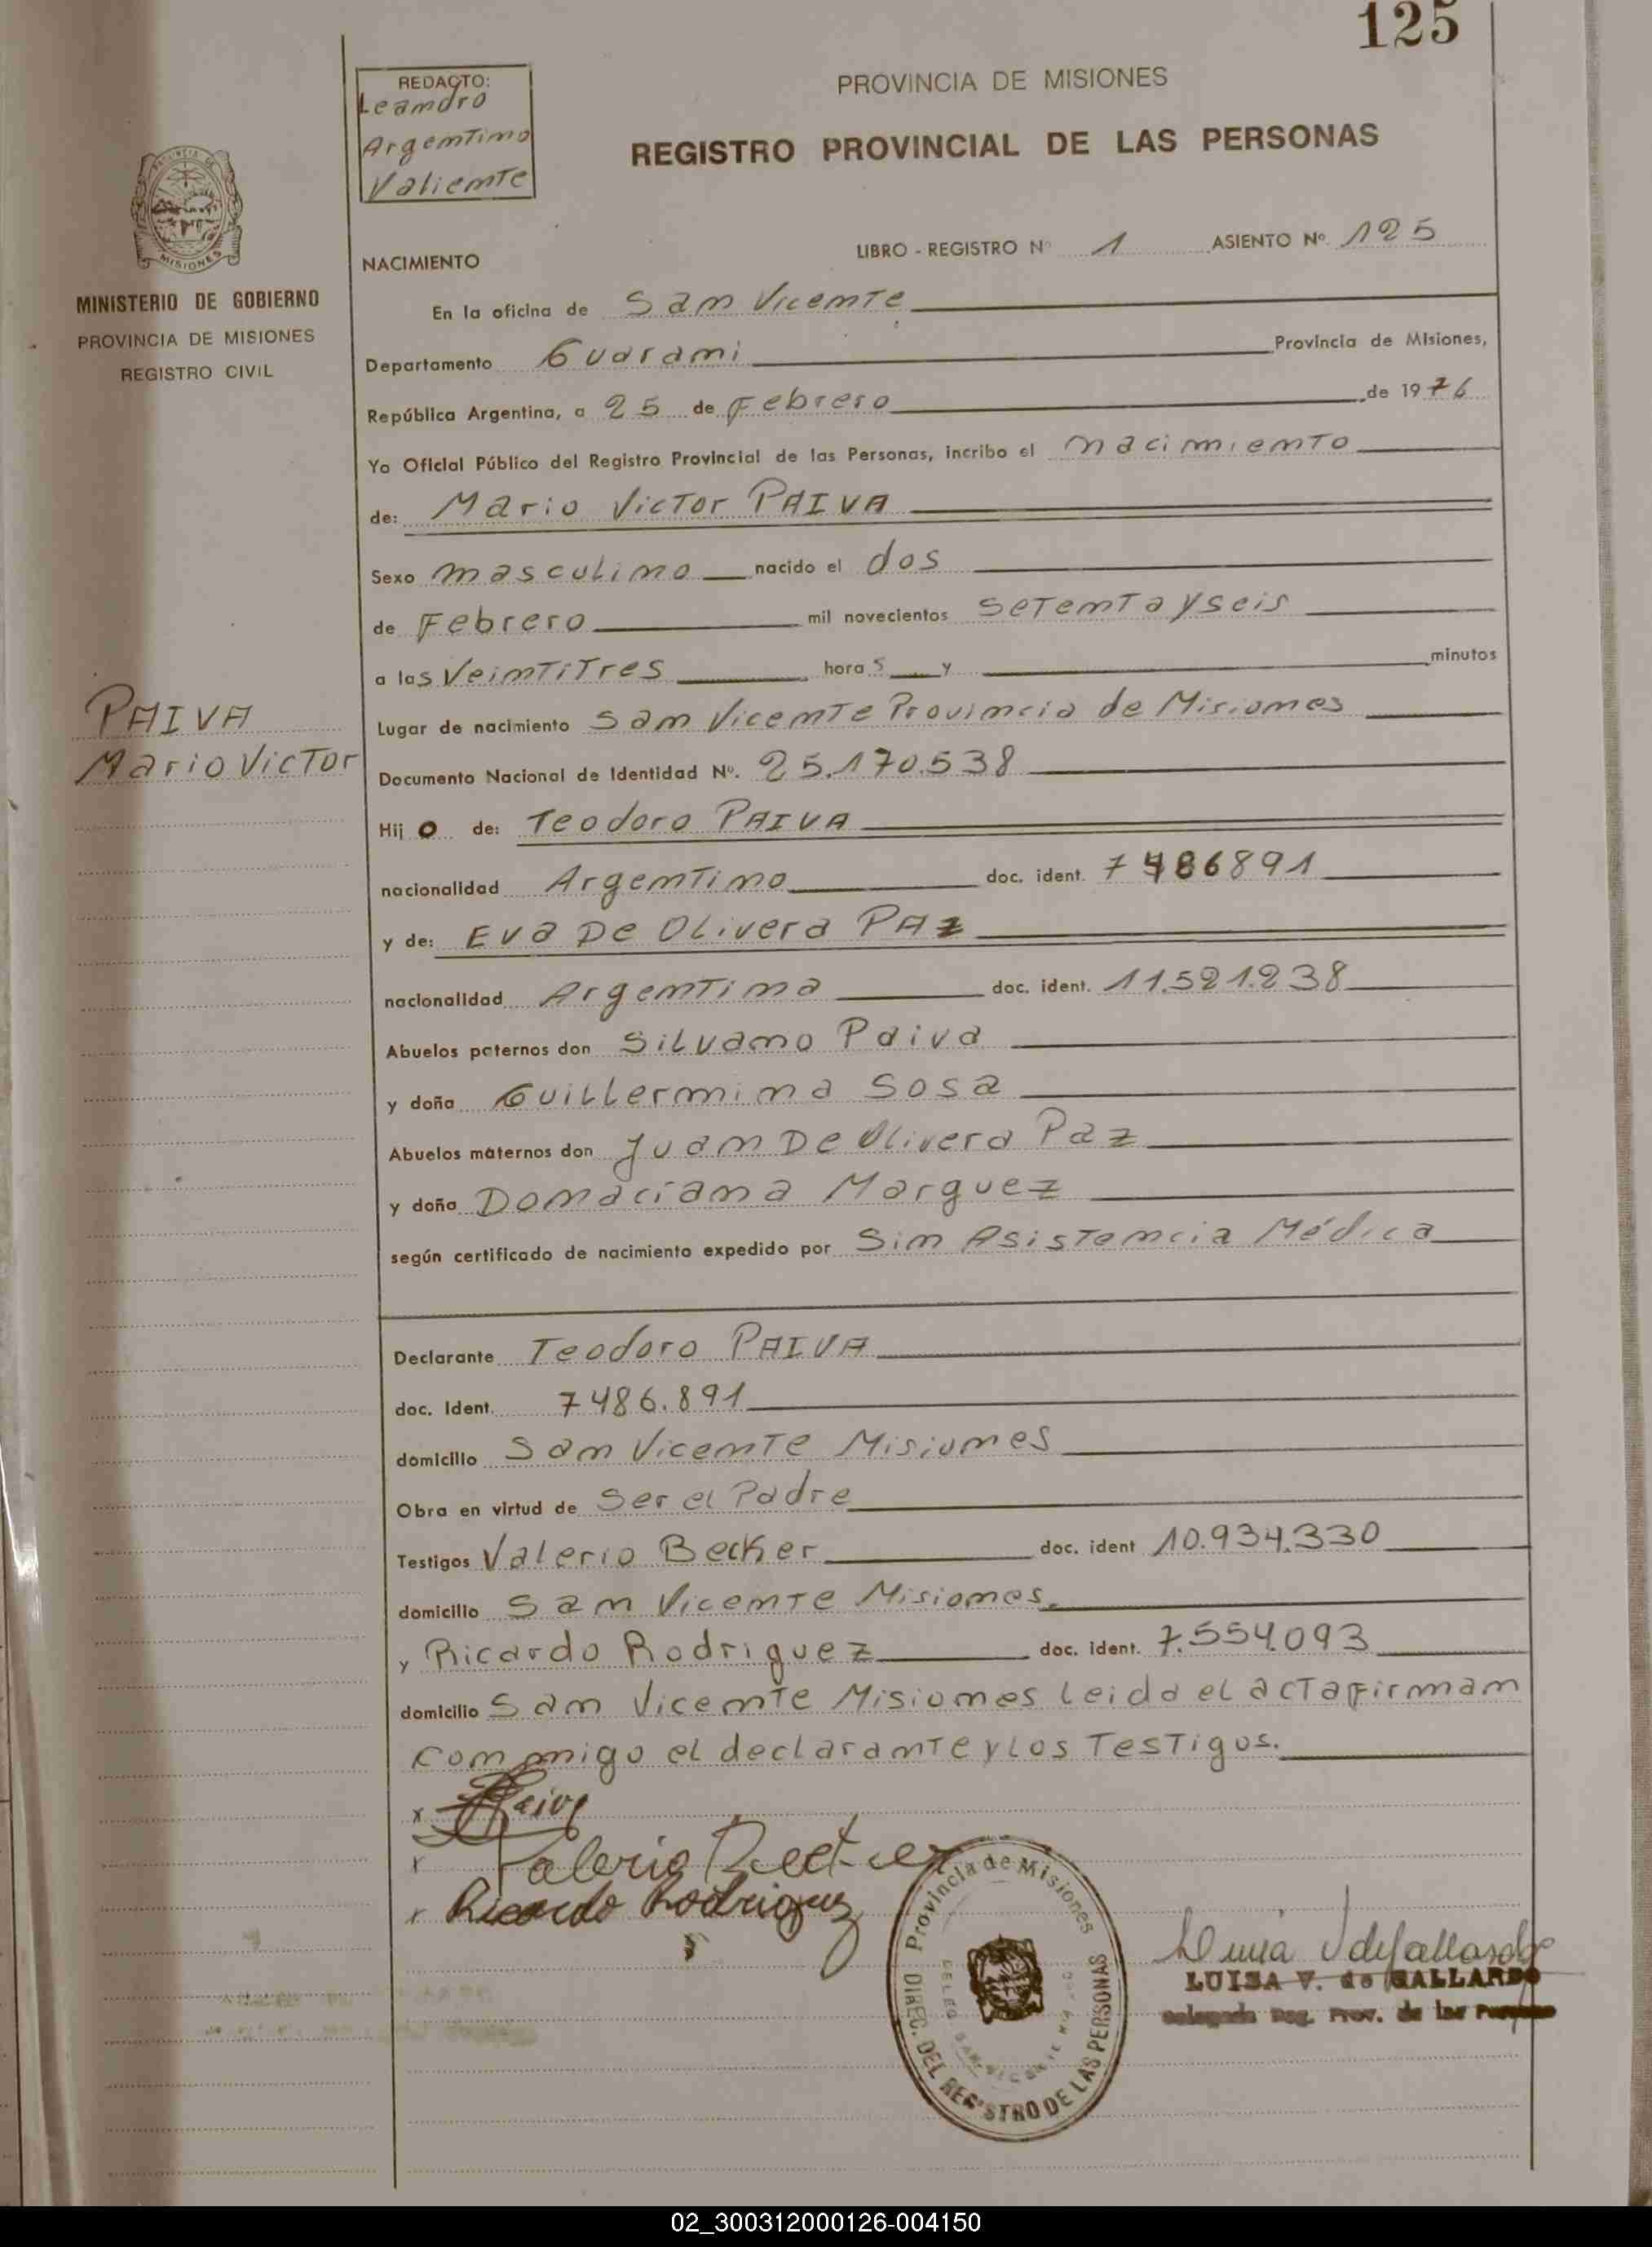 125
REDACTO:
Leandro
Argentino
Valiente
PROVINCIA DE MISIONES
REGISTRO PROVINCIAL DE LAS PERSONAS
MISIONES
MINISTERIO DE GOBIERNO
PROVINCIA DE MISIONES
REGISTRO CIVIL
NACIMIENTO
LIBRO - REGISTRO Nº 1 ASIENTO Nº 125
En la oficina de San Vicente
Departamento Guarani Provincia de Misiones,
República Argentina, a 25 de Febrero de 1976
Yo Oficial Público del Registro Provincial de las Personas, incribo el nacimiento
de: Mario Victor PAIVA
Sexo masculino nacido el dos
de Febrero mil novecientos setenta y seis
a las Veintitres horas y minutos
PAIVA
Mario Victor
Lugar de nacimiento San Vicente Provincia de Misiones
Documento Nacional de Identidad Nº. 25.170.538
Hijo de: Teodoro PAIVA
nacionalidad Argentino doc. ident. 7486891
y de: Eva De Olivera PAZ
nacionalidad Argentina doc. ident. 11.521.238
Abuelos paternos don Silvano Paiva
y doña Guillermina Sosa
Abuelos maternos don Juan De Olivera Paz
y doña Donaciana Marquez
según certificado de nacimiento expedido por Sin Asistencia Médica
Declarante Teodoro PAIVA
doc. Ident. 7486.891
domicilio San Vicente Misiones
Obra en virtud de Ser el Padre
Testigos Valerio Becker doc. ident 10.934.330
domicilio San Vicente Misiones.
y Ricardo Rodriguez doc. ident. 7.554.093
domicilio San Vicente Misiones leida el acta firman
conmigo el declarante y los Testigos.
x Paiva
x Valerio Becker
x Ricardo Rodriguez
Provincia de Misiones
DIREC. DEL REGISTRO DE LAS PERSONAS
LUISA V. de GALLARDO
Delegada Reg. Prov. de las Personas
02_300312000126-004150